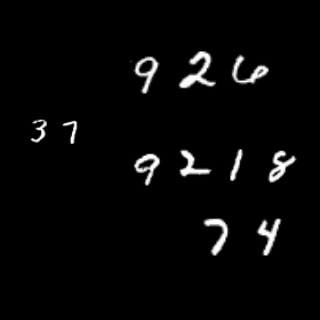 926
37
9218
74